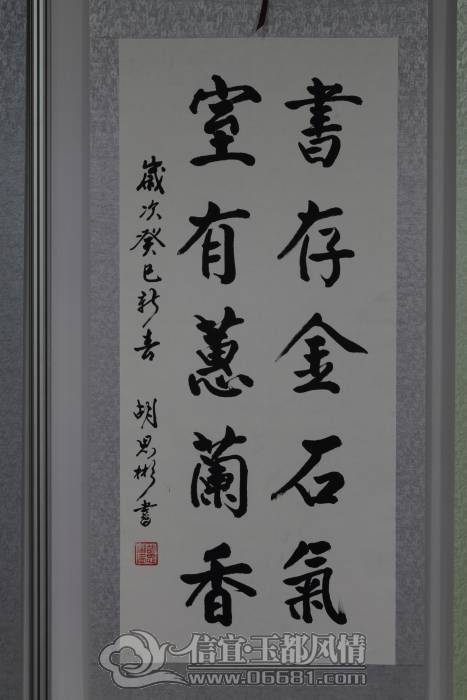 書存金石氣
室有蕙蘭香
歲次癸巳新春 胡思彬書
信宜·玉都风情
www.06681.com